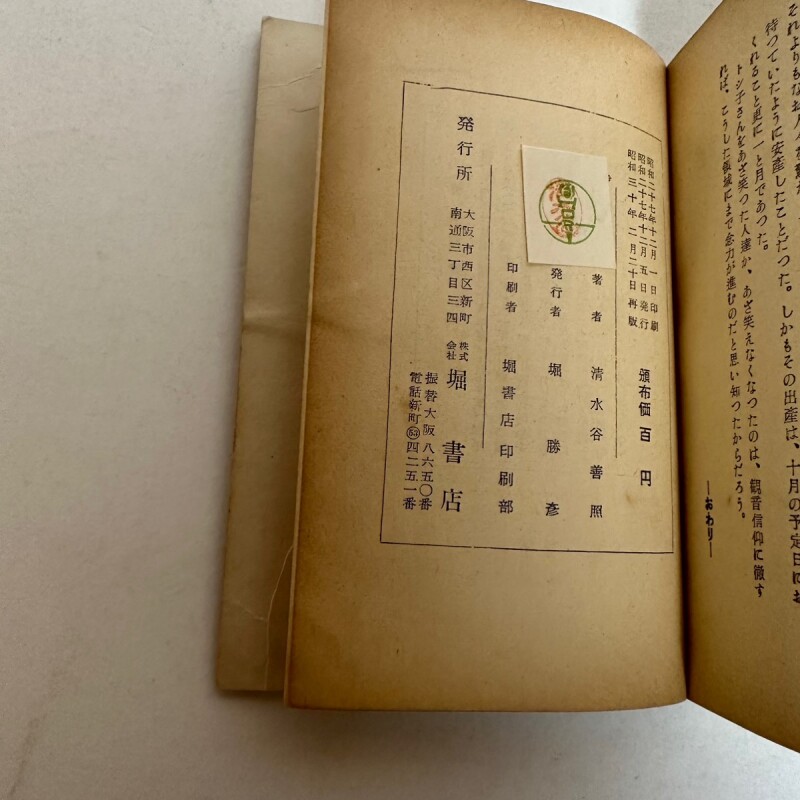 それよりもなお人々
待つていたように安産したことだつた。しかもその出産は、十月の予定日にお
くれること更に一と月であつた。
トシ子さんをあざ笑つた人達が、あざ笑えなくなつたのは、観音信仰に徹す
れば、こうした領域にまで念力が進むのだと思い知つたからだろう。
―おわり―
昭和二十七年十二月一日印刷
昭和二十七年十二月五日発行
昭和三十年二月二十日再版
頒布価百円
著者 清水谷善照
発行者 堀勝彦
印刷者 堀書店印刷部
発行所
大阪市西区新町
南通三丁目三四
株式会社 堀書店
振替大阪八六五〇番
電話新町(53)四二五一番